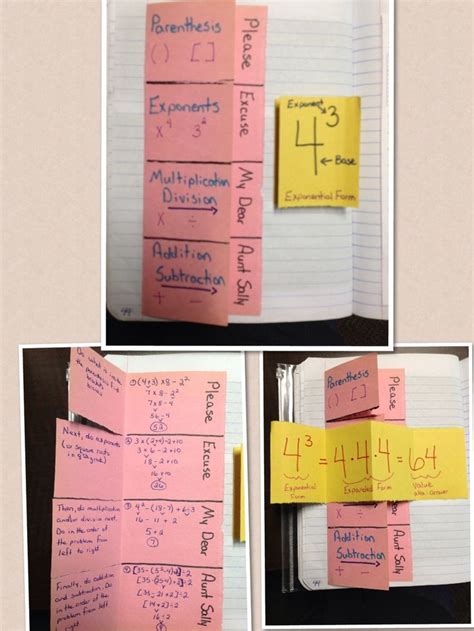 Parenthesis
( ) [ ]
Please
Exponents
x⁴ 3²
Excuse
Multiplication
Division
× ÷
My Dear
Addition
Subtraction
+ −
Aunt Sally
44
Exponent
4³
Base
Exponential Form
Do what is
the parenthesis first
Next, do exponents
(or square roots
in 8th grade)
Then, do multiplication
and/or division next.
Do in the order of
the problem from
left to right.
Finally, do addition
and subtraction. Do
in the order of the
problem from left
to right.
① (4+3)×8−2²
7×8−2²
7×8−4
56−4
52
Please
3×(2+4)−2+10
3×6−2+10
18−2+10
16+10
26
Excuse
4²−(18−7)+6−3
16−11+2
5+2
7
My Dear
[35−(5²−4)+2]÷2
[35−(25−4)+2]÷2
[35−21+2]÷2
[14+2]÷2
Aunt Sally
Parenthesis
( ) [ ]
4³ = 4·4·4 = 64
Exponential
Form
Expanded Form
Value
aka: answer
Addition
Subtraction
+ −
Aunt Sally
44